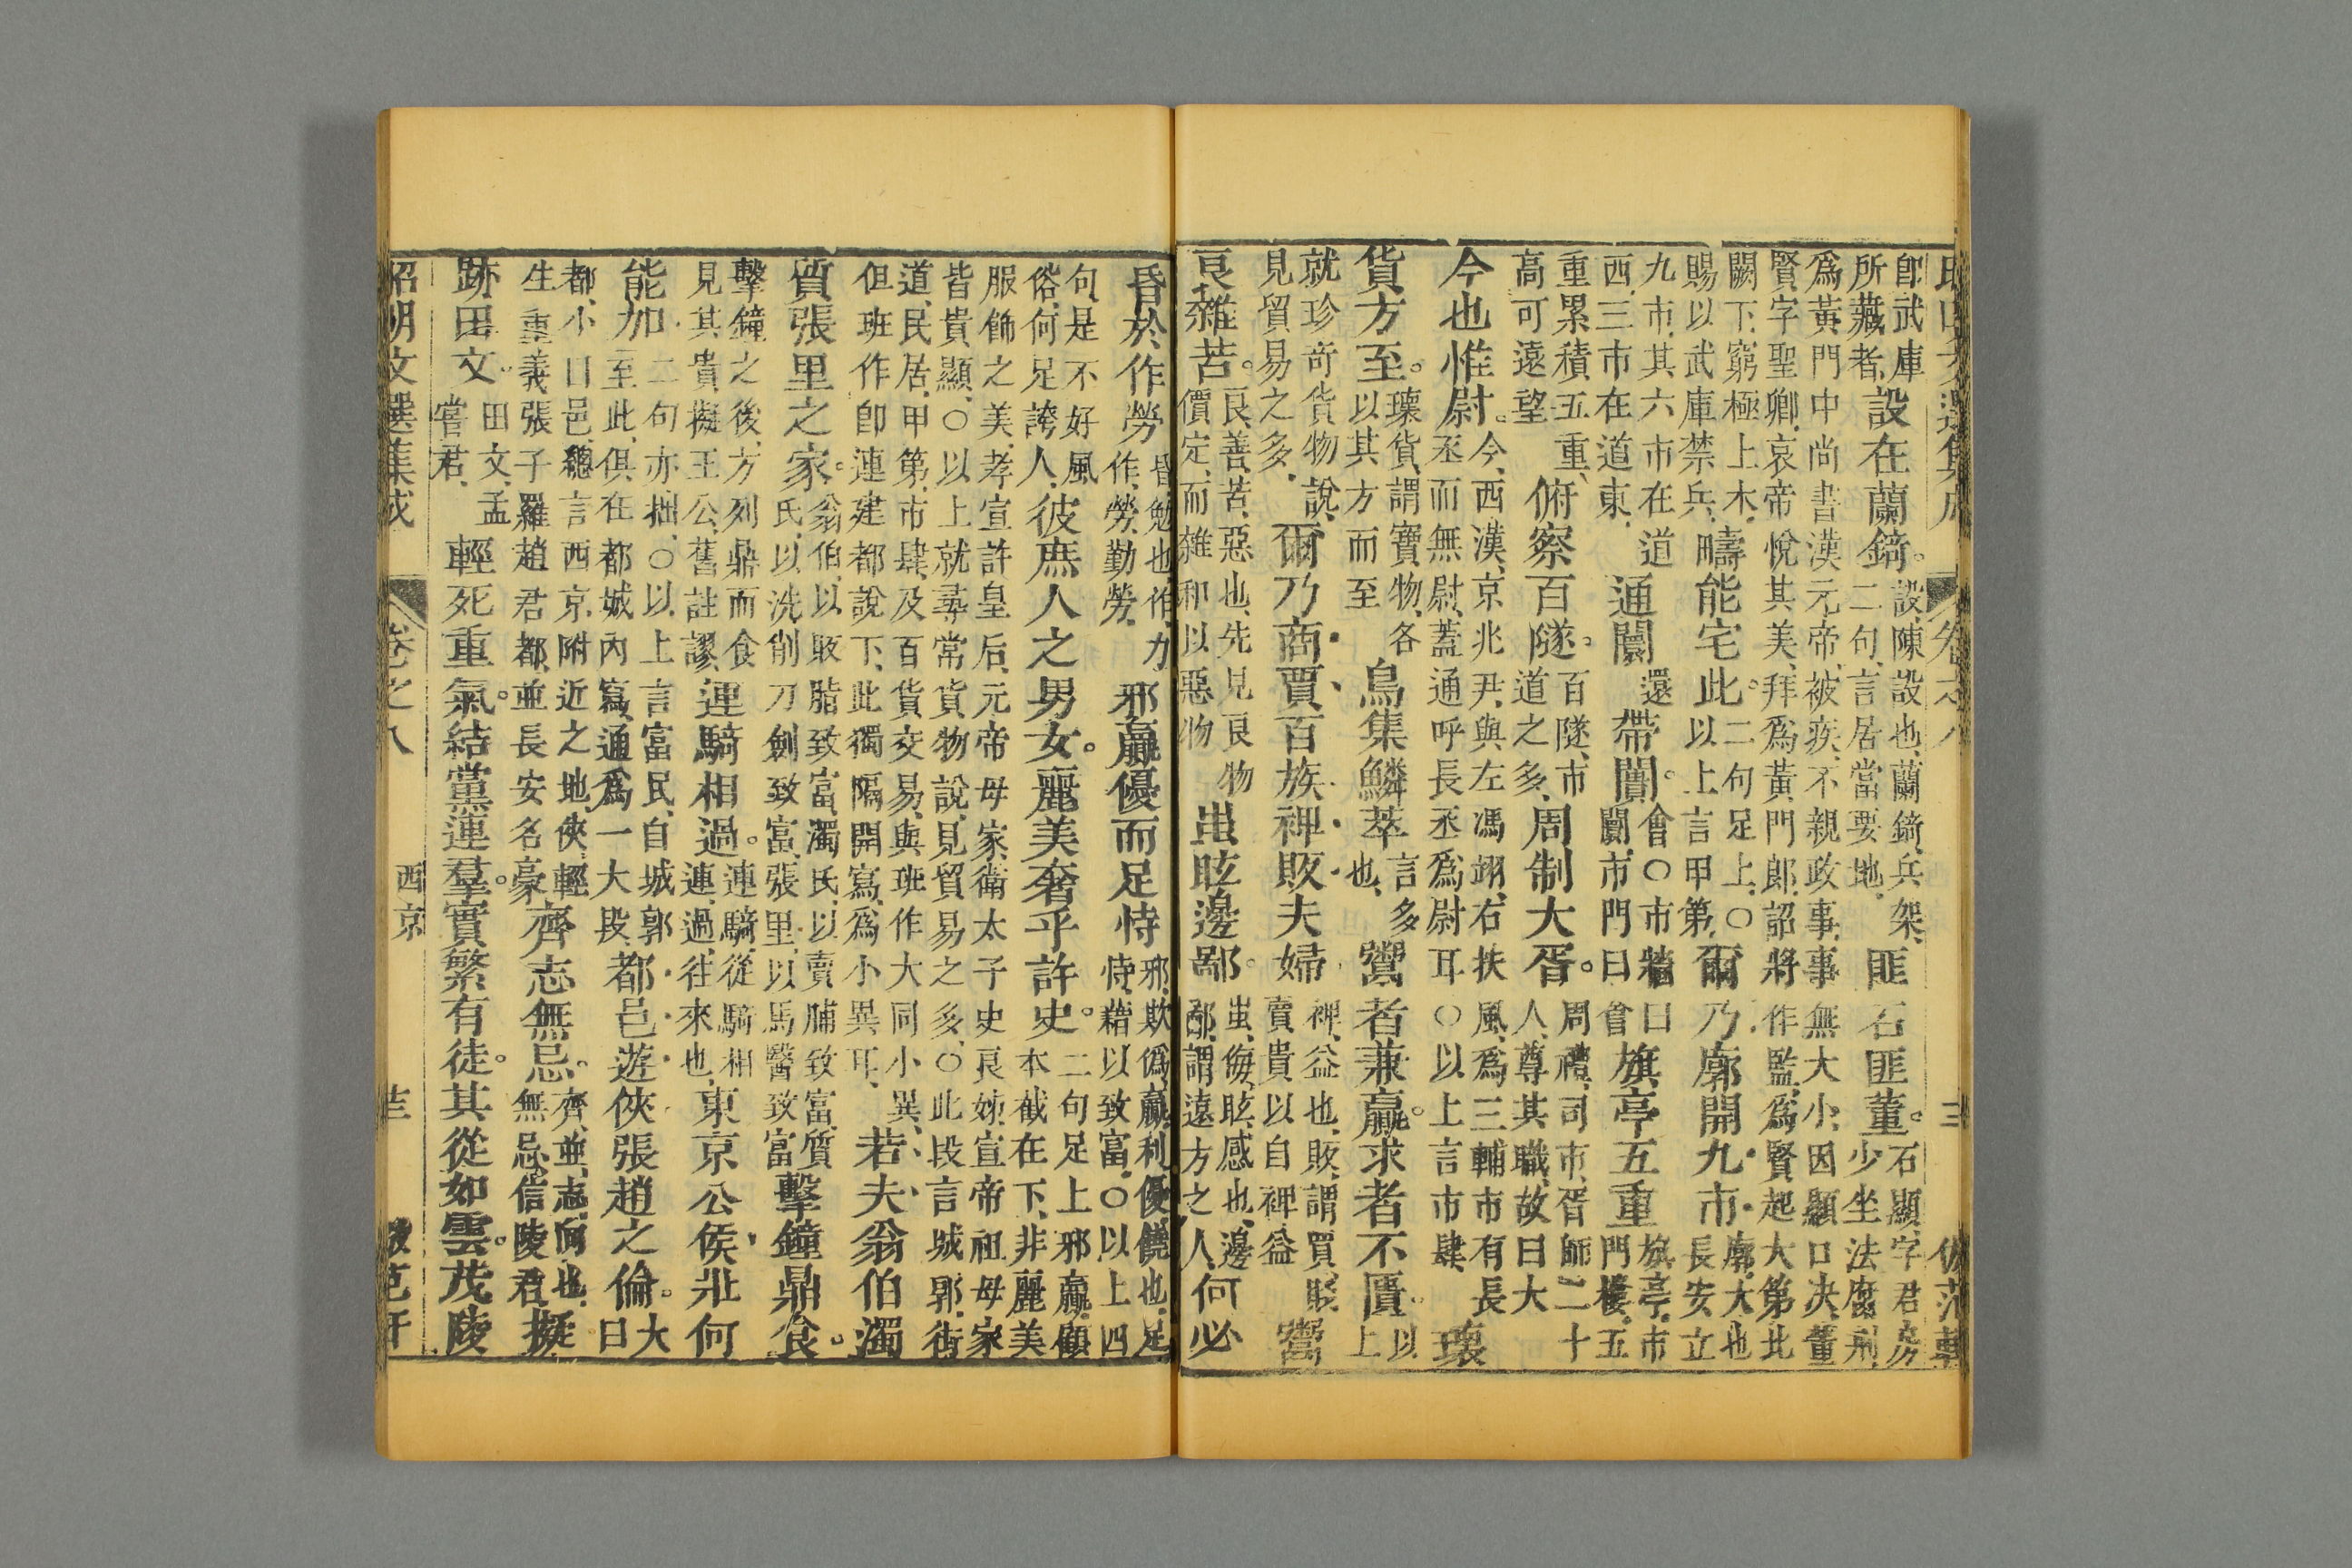 即武庫所藏者、設在蘭錡。設、陳設也、蘭錡、兵架、二句、言居當要地、匪石匪董。石顯、字君房少坐法腐刑、
爲黃門中尚書漢元帝、被疾、不親政事、事無大小、因顯口決、董賢字聖卿、哀帝悅其美、拜爲黃門郎、詔將作監、爲賢起大第北
闕下、窮極上木、賜以武庫禁兵、疇能宅此。二句足上、○以上言甲第、爾乃廓開九市廓、大也長安立
九市、其六市在道西、三市在道東、通闤還帶闠。會○市牆曰闤、市門曰會旗亭五重旗亭、市門樓、五
重累積五重、高可遠望俯察百隧。百隧、市道之多、周制大胥。周禮、司市、胥師二十人、尊其職、故曰大
今也惟尉。今、西漢、京兆尹、與左馮翊、右扶風、爲三輔市有長丞而無尉、蓋通呼長丞爲尉耳○以上言市肆、瓌
貨方至。瓌貨、謂寶物、各以其方而至鳥集鱗萃言多也、鬻者兼贏。求者不匱。以上
就珍奇貨物說、見貿易之多、爾乃商賈百族裨販夫婦裨、益也、販、謂買賤、賣貴以自裨益鬻
良雜苦。良、善、苦、惡也、先見良物價定、而雜和以惡物蚩眩邊鄙。蚩、侮、眩、惑也、邊鄙、謂遠方之人、何必
昏於作勞昏、勉也、作、力作、勞、勤勞、邪贏優而足恃邪、欺僞、贏、利、優、饒也、足恃、藉以致富、○以上四
句、是不好風俗、何足誇人、彼庶人之男女。麗美奢乎許史。二句足上邪贏、顧本截在下、非麗美
服飾之美、孝宣許皇后、元帝母家、衛太子史良娣宣帝祖母家皆貴顯、○以上就尋常貨物說、見貿易之多、○此段言城郭、街
道、民居、甲第、市肆、及百貨交易、與班作大同小異、但班作即連建都說下、此獨隔開寫、爲小異耳、若夫翁伯濁
質張里之家。翁伯、以販脂致富、濁氏、以賣脯致富、質氏、以洗削刀劍致富、張里、以馬醫致富擊鐘鼎食。
擊鐘之後、方列鼎而食見其貴擬王公、舊註謬、連騎相過。連騎、從騎相連、過、往來也、東京公侯壯何
能加二句亦拙、○以上言富民、自城郭至此、俱在都城內寫、通爲一大段、都邑遊俠張趙之倫。大曰
都、小曰邑、總言西京附近之地、俠、輕生重義張子羅趙君都、並長安名豪齊志無忌。齊、並、志、向也、無忌、信陵君、擬
跡田文。田文、孟嘗君、輕死重氣。結黨連羣。實繁有徒。其從如雲。茂陵
昭明文選集成 卷之八 西京